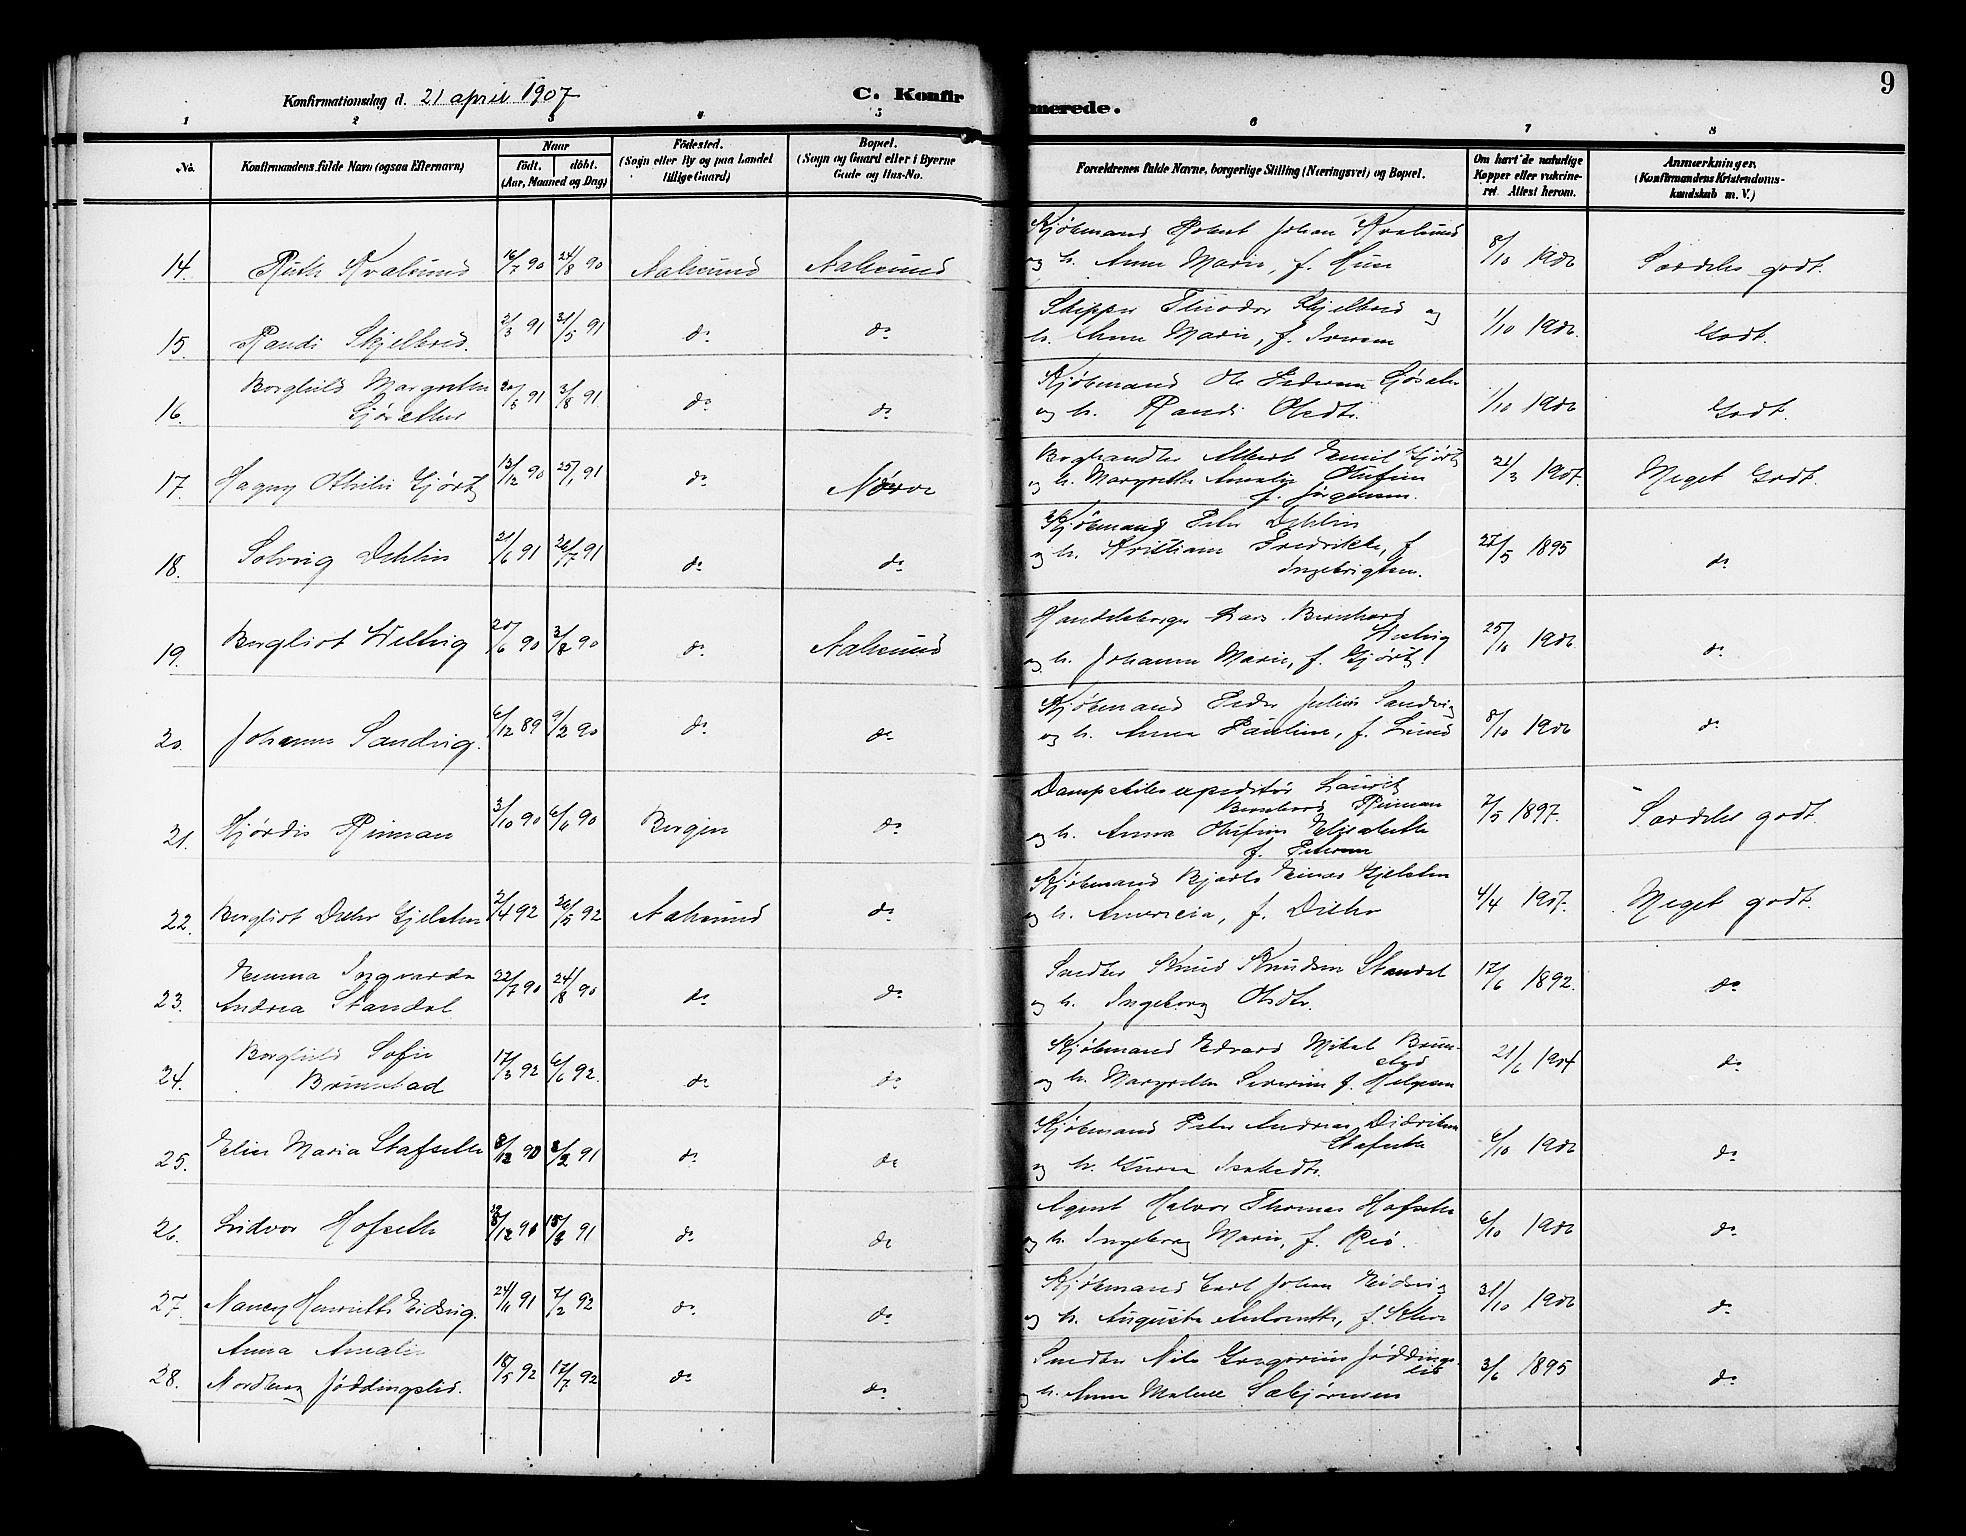 9
Konfirmationsdag d. 21 april 1907
C. Konfirmerede.
1 2 3 4 5 6 7 8
No. Konfirmandens fulde Navn (ogsaa Efternavn) Naar født. døbt. (Aar, Maaned og Dag) Fødested. (Sogn eller By og paa Landet tillige Gaard) Bopæl. (Sogn og Gaard eller i Byerne Gade og Hus-No. Forældrenes fulde Navne, borgerlige Stilling (Næringsvei) og Bopæl. Om havt de naturlige Kopper eller vakcineret Attest herom. Anmærkninger. (Konfirmandens Kristendomskundskab m. V.)
14. Ruth Kvalsund 16/7 90 24/8 90 Aalesund Aalesund Kjøbmand Robert Johan Kvalsund
og h. Anne Marie, f. 8/10 1906 Særdeles godt.
15. Randi Skjelbred. 2/3 91 31/5 91 do do Skipper Theodor Skjelbred og
h. Anne Marie, f. Iversen 1/10 1906 Godt.
16. Borghild Margrethe
91 3/8 91 do do Kjøbmand Ole Pedersen
og h. Randi Olsdtr. 1/10 1906 Godt.
17. Hagny Othilie Gjørtz 13/12 90 25/1 91 do Nørve Boghandler Albert Emil Gjørtz
og h. Margrethe Amalie Olufine
f. Jørgensen. 21/3 1907. Meget Godt.
18. Solveig Dehlin 21/6 91 26/7 91 do do Kjøbmand Peter Dehlin
og h. Kristiane Fredrikke, f.
Ingebrigtsen. 27/5 1895 do
19. Bergliot Welvig 20/6 90 3/8 90 do Aalesund Handelsborger Lars Bernhard
og h. Johanne Marie, f. Gjørtz 25/10 1906 do
20. Johanne Sandvig. 6/12 89 9/2 90 do do Kjøbmand Peder Julius Sandvig
og h. Anna Pauline, f. Lund 8/10 1906 do
21. Hjørdis Rinnan 3/10 90 6/11 90 Bergen do Dampskibsexpeditør Laurits
Bernhard Rinnan
og h. Anna Olufine Elisabeth
f. Petersen 7/5 1897. Særdeles godt.
22. Bergliot Gjelsten 2/4 92 26/5 92 Aalesund do Kjøbmand Bjarte Einar Gjelsten
og h. Amercia, f. 4/4 1907. Meget godt.
23. Emma Ingvarda
Andrea Standal 22/7 90 24/8 90 do do Snedker Knud Knudsen Standal
og h. Ingeborg Olsdtr. 17/6 1892. do
24. Borghild Sofie
Brunstad 17/3 92 6/6 92. do do Kjøbmand Edvard Mikal Brunstad
og h. Margrethe Severine f. Helgesen 21/6 1904 do
25. Elise Maria Stafseth 8/12 90 8/2 91 do do Kjøbmand Peter Andreas Didriksen
Stafseth
og h. 6/10 1906 do
26. Lidvor Hofseth 15/3 91 do do Agent Halvor Thomas Hofseth
og h. Ingeborg Marie, f. Riø. 6/10 1906 do
27. Nancy Henriette Eidsvig. 24/11 91 7/2 92 do do Kjøbmand Carl Johan Eidsvig
og h. Augusta Antonette, f. 31/10 1906 do
28. Anna Amalie
Nordberg Jøddingslid. 18/5 92 17/7 92 do do Snedker Nils Gregorius Jøddingslid
og h. Anne Malene Sæbjørnsen 3/6 1895 do